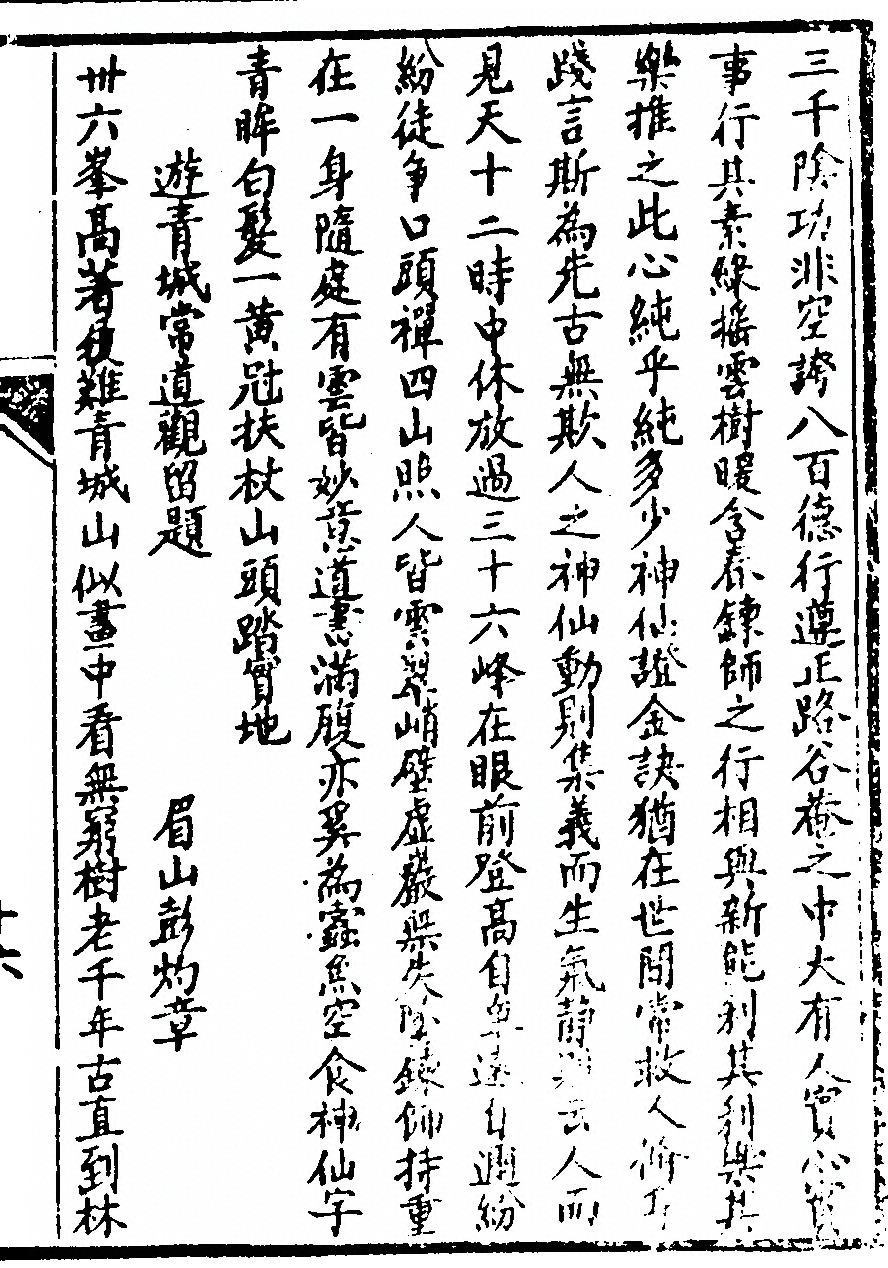 三千陰功非空誇八百德行遵正路谷菴之中大有人實心實
事行其素綠搖雲樹暖含春鍊師之行相與新能利其利樂其
樂推之此心純乎純多少神仙證金訣猶在世間常救人修
踐言斯為先古無欺人之神仙動則集義而生氣靜 云人而
見天十二時中休放過三十六峰在眼前登高自卑遠自邇紛
紛徒爭口頭禪四山照人皆雲翠峭壁虛巖無失墜鍊師持重
在一身隨處有雲皆妙黃道書滿腹亦奚為蠹魚空食神仙字
青眸白髮一黃冠扶杖山頭踏實地
遊青城常道觀留題
眉山彭灼章
卅六峯高著履難青城山似畫中看無窮樹老千年古直到林
十六